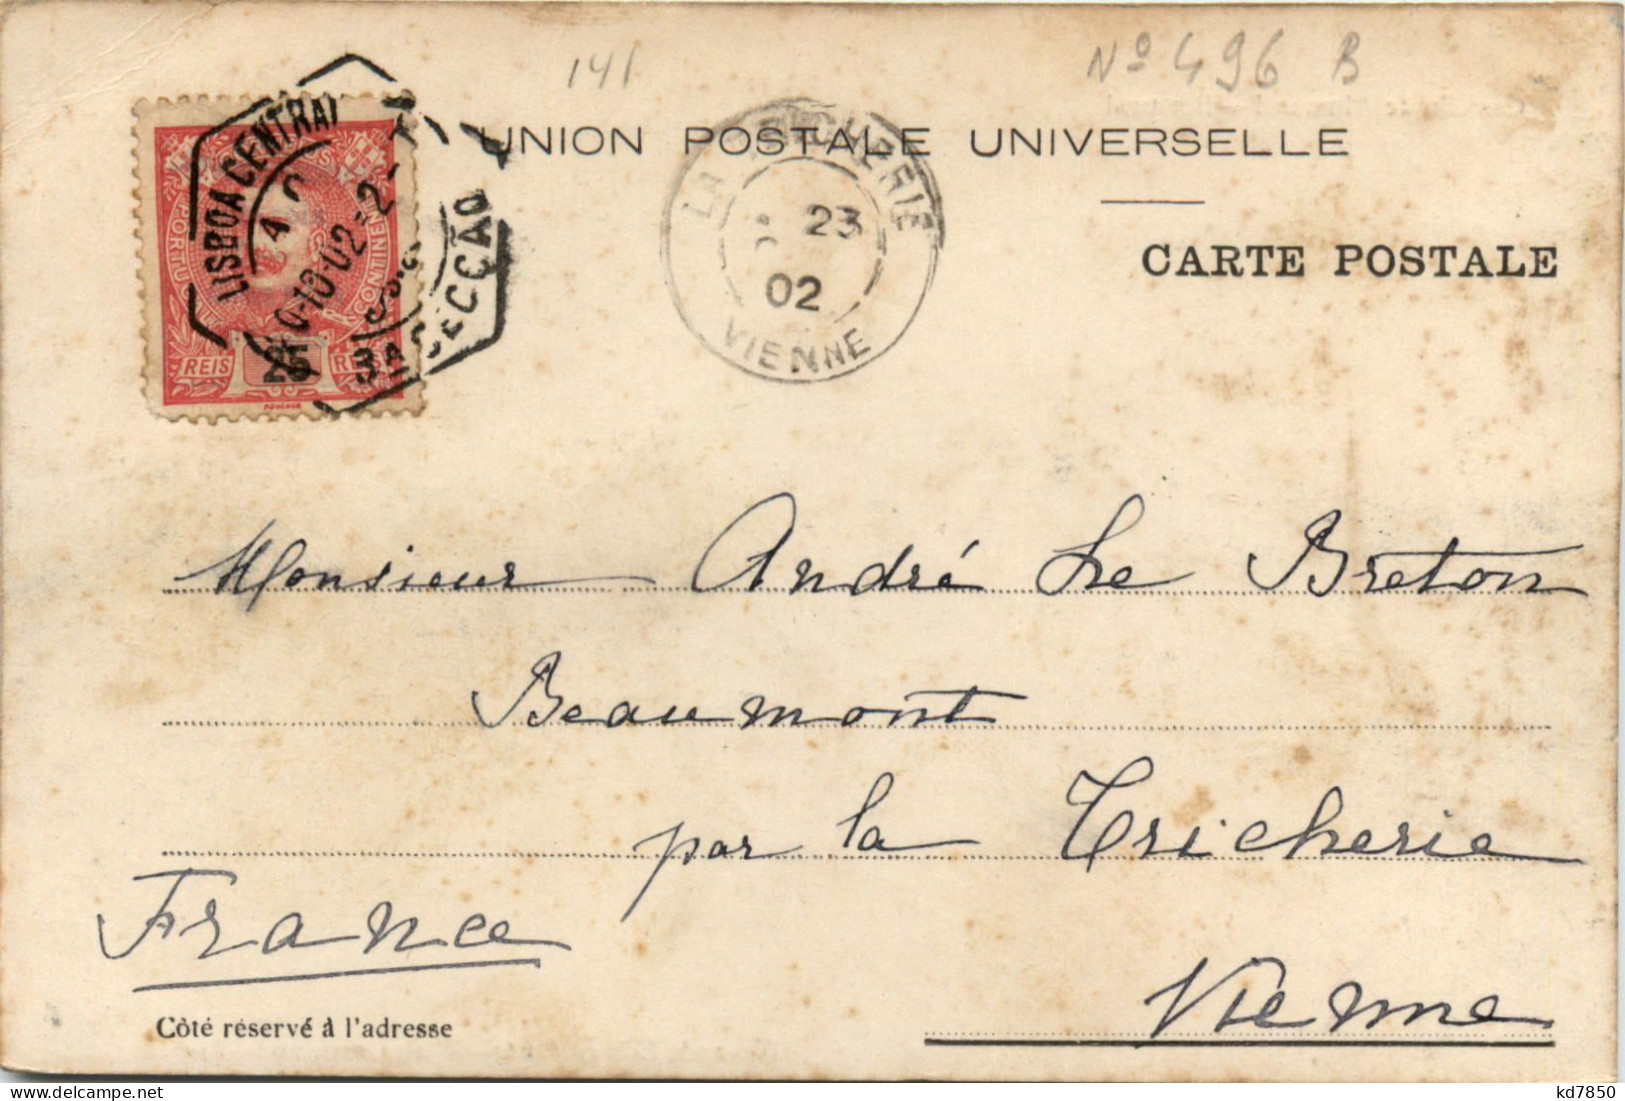 141
Nº 496 B
UNION POSTALE UNIVERSELLE
CARTE POSTALE
LISBOA CENTRAL
3A SECCAO
PORTUGAL
CONTINENTE
REIS 25
LA TRICHERIE
23
02
VIENNE
Monsieur André Le Breton
Beaumont
par la Tricherie
France
Vienne
Côté réservé à l'adresse
kd7850